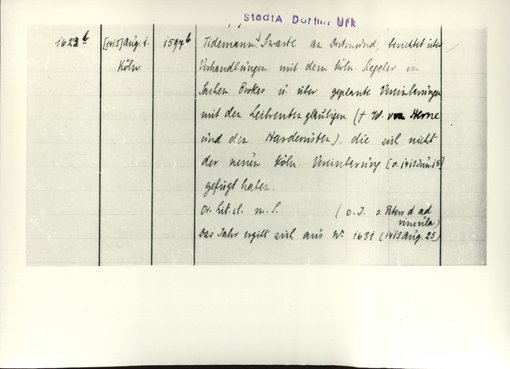 StadtA Dortm. Urk
1623 b [1413] Aug. 1. 1594 b Tidemann Swarte an Dortmund, berichtet über
Köln. Verhandlungen mit dem Köln. Siegeler in
Sachen und über geplante Vereinbarungen
mit den Leibrentengläubigen († W. von Herne
und den Hardenisten), die sich nicht
der neuen Köln. Vereinbarung [v. 1413 Juni 15]
gefügt haben.
Or. lit. cl. m. S. (o. J. s. Petri d ad
vincula)
Das Jahr ergibt sich aus Nr 1631 (1413 Aug. 25)